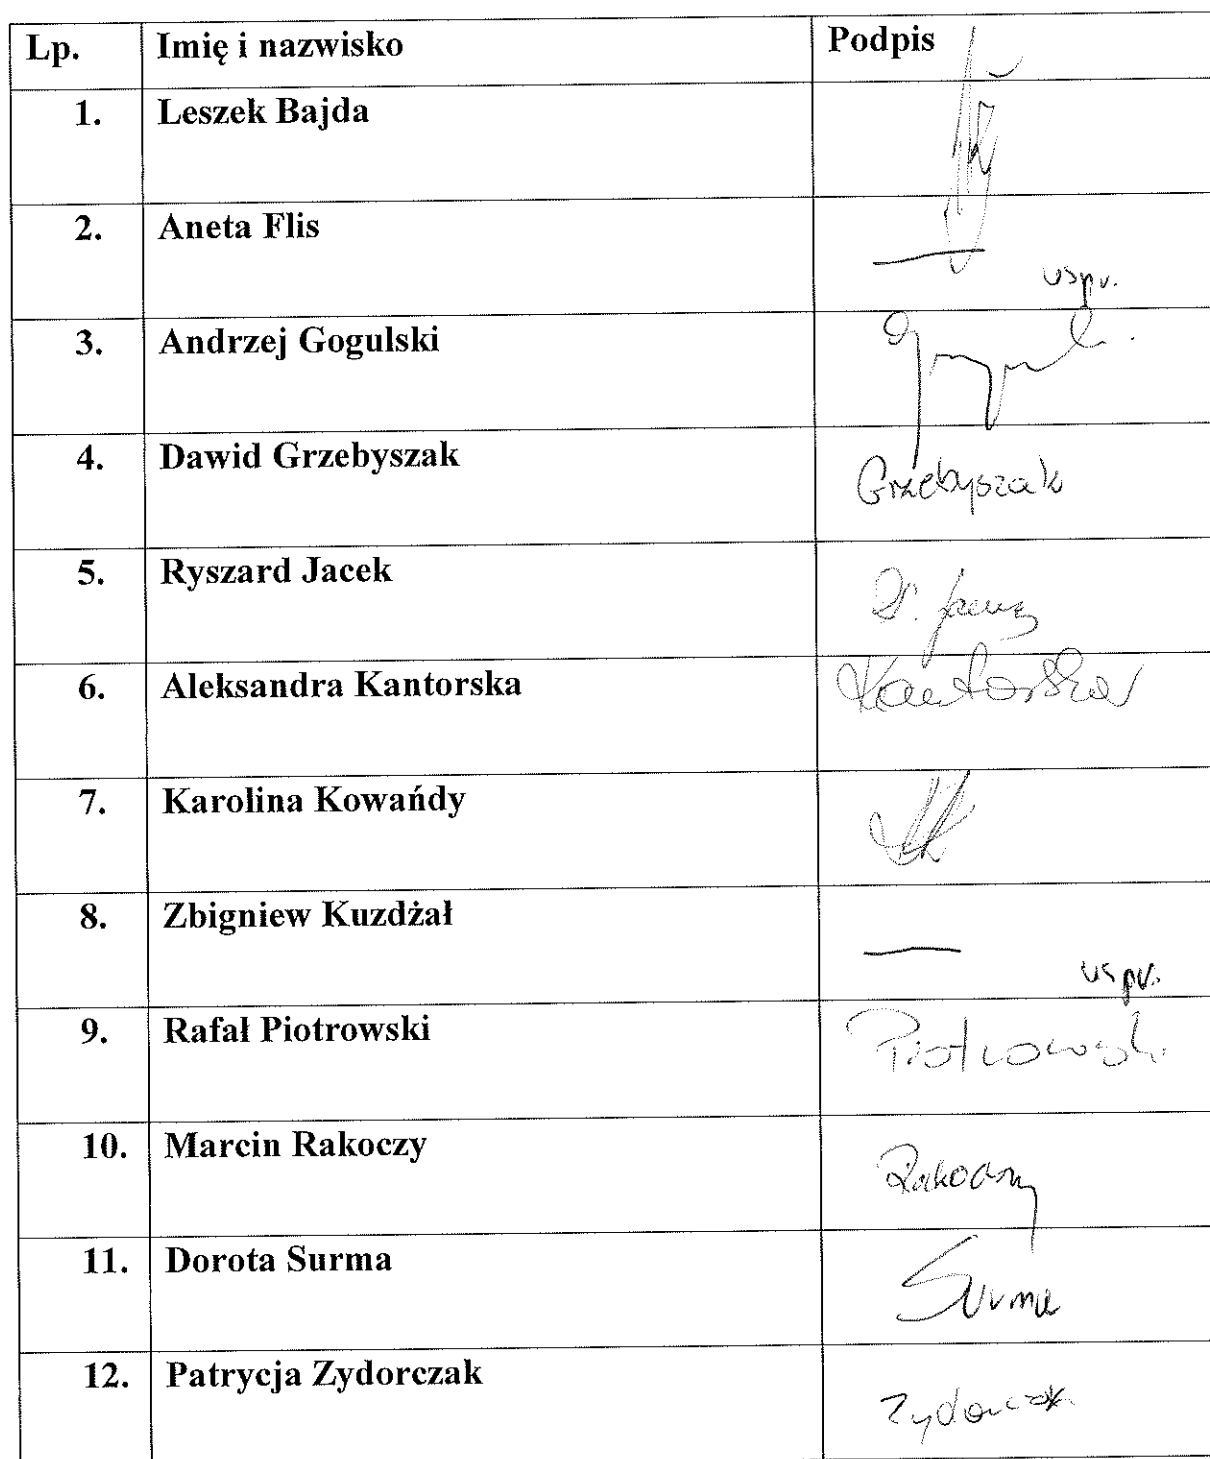 Lp. Imię i nazwisko Podpis
1. Leszek Bajda
2. Aneta Flis uspr.
3. Andrzej Gogulski
4. Dawid Grzebyszak Grzebyszak
5. Ryszard Jacek
6. Aleksandra Kantorska Kantorska
7. Karolina Kowańdy
8. Zbigniew Kuzdżał uspr.
9. Rafał Piotrowski Piotrowski
10. Marcin Rakoczy Rakoczy
11. Dorota Surma Surma
12. Patrycja Zydorczak Zydorczak